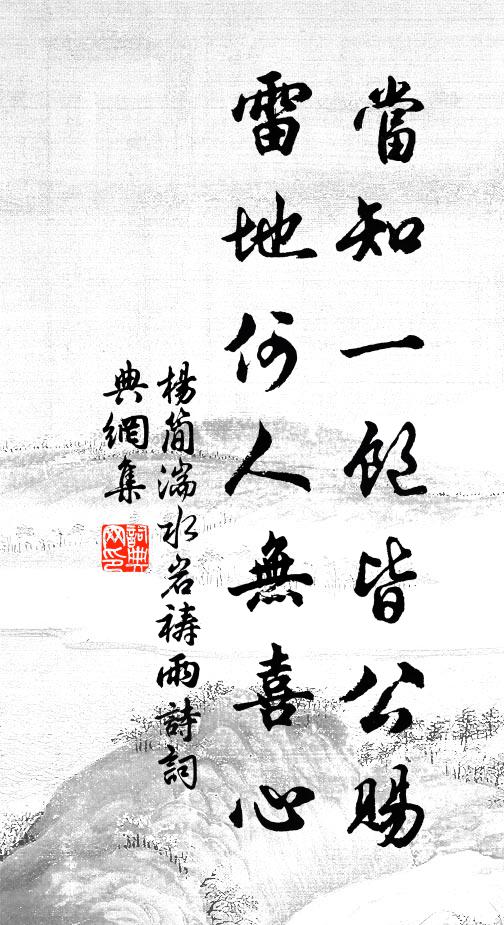 當知一飽皆公賜
雷地何人無喜心
楊簡湍水岩禱雨詩詞
典網集
詞典
网印